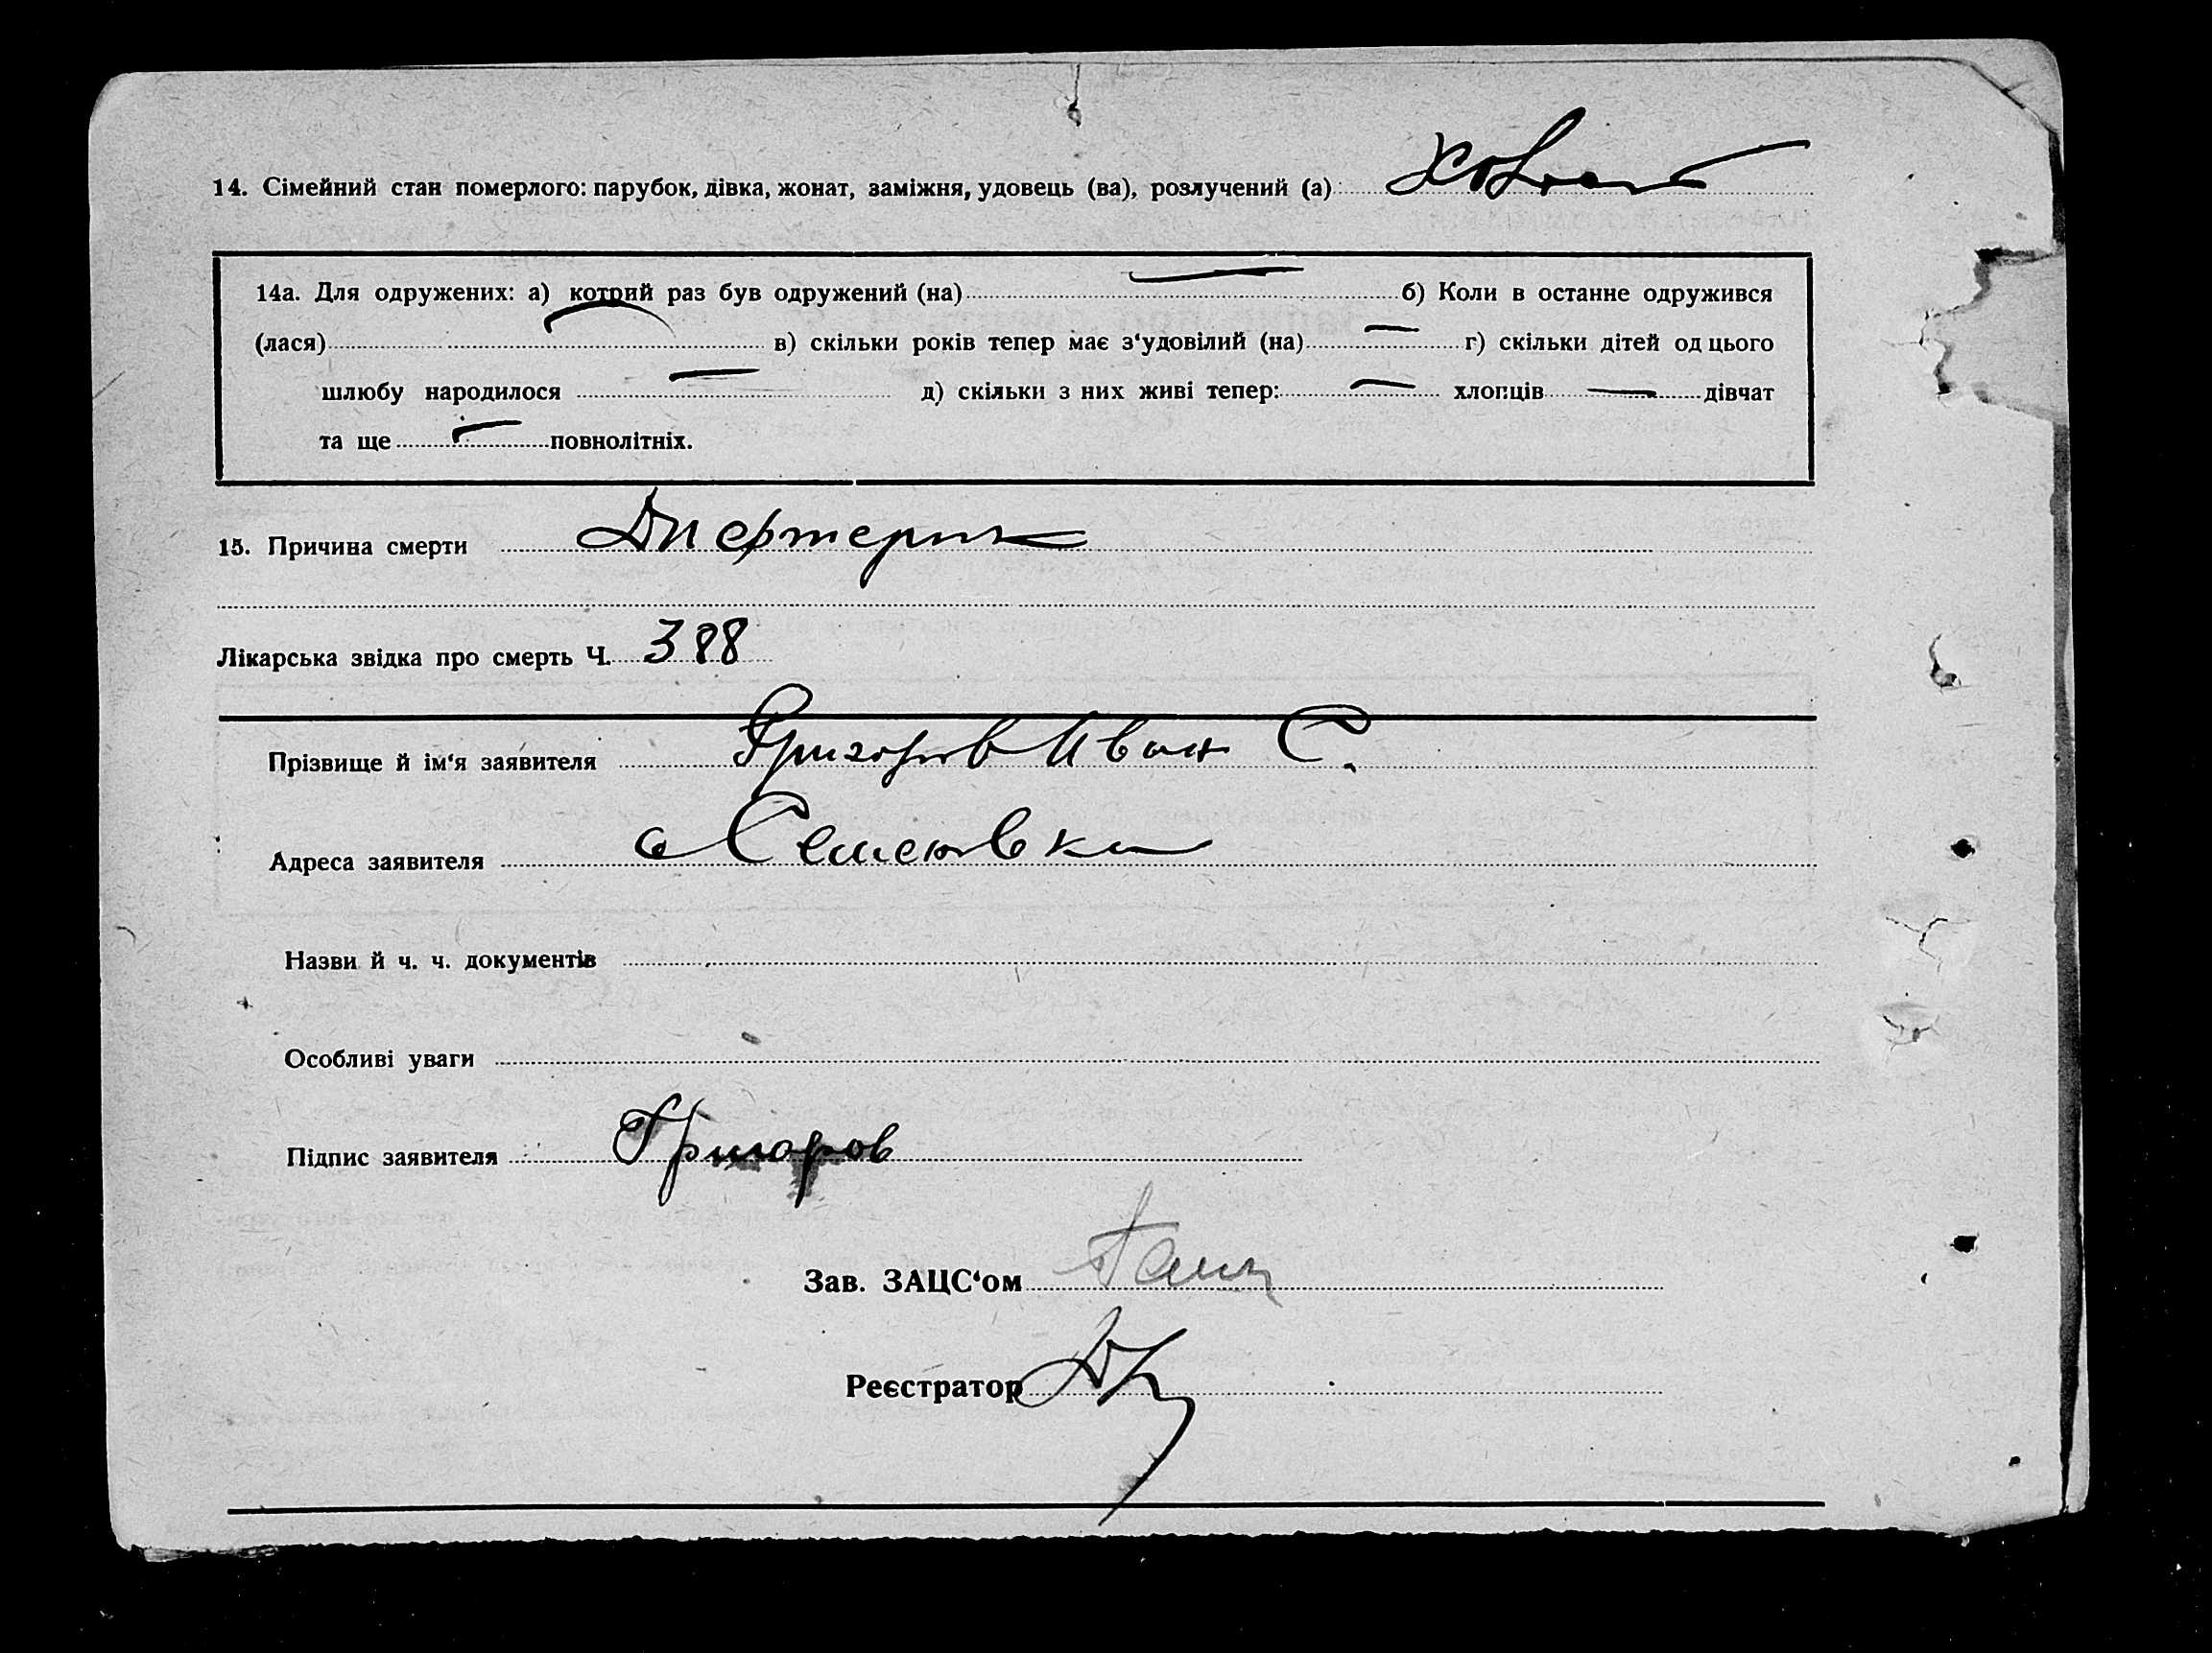 14. Сімейний стан померлого: парубок, дівка, жонат, заміжня, удовець (ва), розлучений (а)
14а. Для одружених: а) котрий раз був одружений (на) б) Коли в останне одружився
(лася) в) скільки років тепер має з‘удовілий (на) г) скільки дітей од цього
шлюбу народилося д) скільки з них живі тепер: хлопців дівчат
та ще повнолітніх.
15. Причина смерти Диефтерик
Лікарська звідка про смерть Ч. 388
Прізвище й ім‘я заявителя Григоров Иван С.
Адреса заявителя с Семеновка
Назви й ч. ч. документів
Особливі уваги
Підпис заявителя Григоров
Зав. ЗАЦС‘ом
Реєстратор